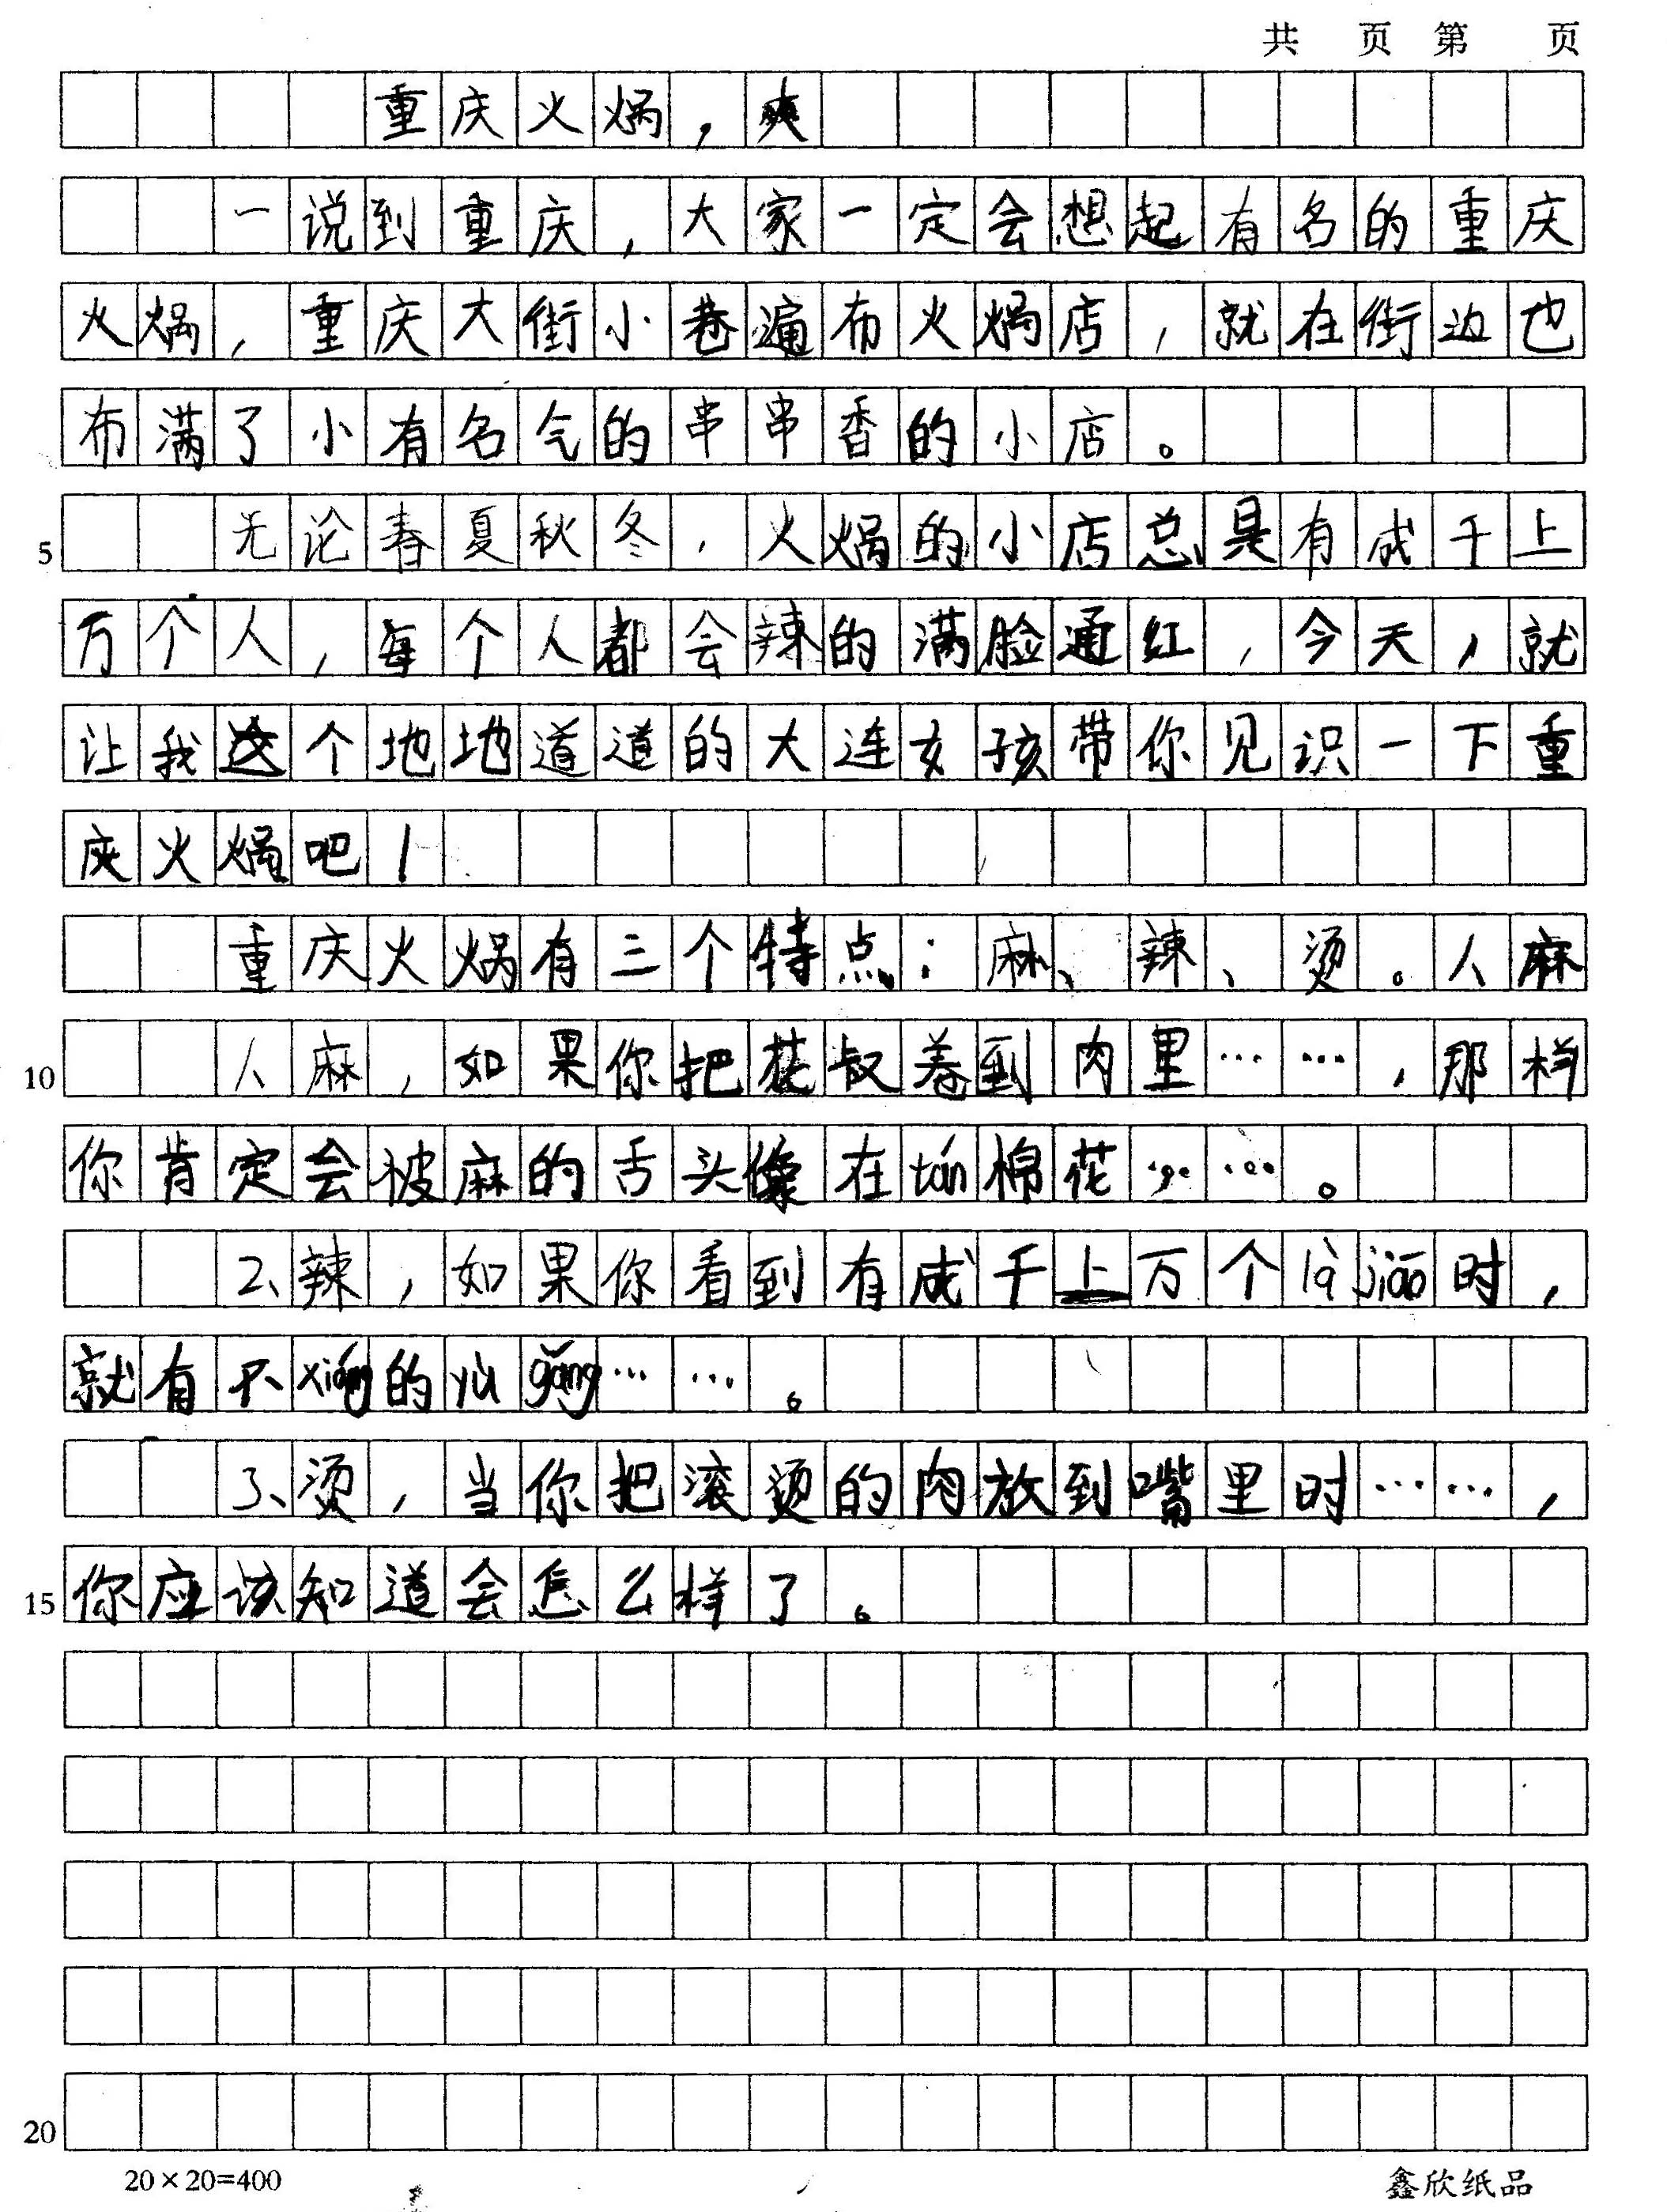 共 页 第 页
重庆火锅，爽
一说到重庆，大家一定会想起有名的重庆
火锅，重庆大街小巷遍布火锅店，就在街边也
布满了小有名气的串串香的小店。
5 无论春夏秋冬，火锅的小店总是有成千上
万个人，每个人都会辣的满脸通红，今天，就
让我这个地地道道的大连女孩带你见识一下重
庆火锅吧！
重庆火锅有三个特点：麻、辣、烫。人麻
10 1、麻，如果你把花叔卷到肉里……，那样
你肯定会被麻的舌头像在tán棉花……。
2、辣，如果你看到有成千上万个là jiāo时，
就有不xiáng的yù gǎng……。
3、烫，当你把滚烫的肉放到嘴里时……，
15 你应该知道会怎么样了。
20
20×20=400 鑫欣纸品